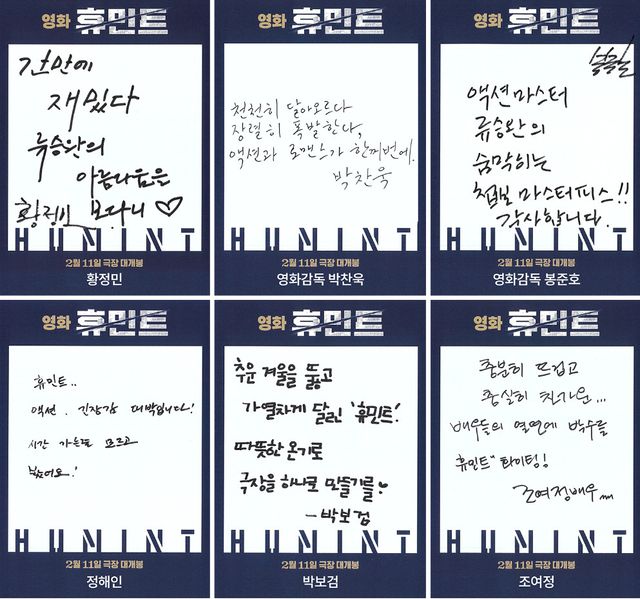 영화 휴민트
간만에
재밌다
류승완의
아름다움을
황정민 보다니 ♡
HUMINT
2월 11일 극장 대개봉
황정민
영화 휴민트
천천히 달아오르다
장렬히 폭발한다,
액션과 로맨스가 한꺼번에.
박찬욱
HUMINT
2월 11일 극장 대개봉
영화감독 박찬욱
영화 휴민트
액션마스터
류승완의
숨막히는
첩보 마스터피스!!
감사합니다.
HUMINT
2월 11일 극장 대개봉
영화감독 봉준호
영화 휴민트
휴민트..
액션, 긴장감 대박입니다!
시간 가는줄 모르고
봤어요!
HUMINT
2월 11일 극장 대개봉
정해인
영화 휴민트
추운 겨울을 뚫고
가열차게 달린 '휴민트'!
따뜻한 온기로
극장을 하나로 만들기를♥
-박보검
HUMINT
2월 11일 극장 대개봉
박보검
영화 휴민트
충분히 뜨겁고
충실히 차가운...
배우들의 열연에 박수를
휴민트" 화이팅!
조여정배우
HUMINT
2월 11일 극장 대개봉
조여정